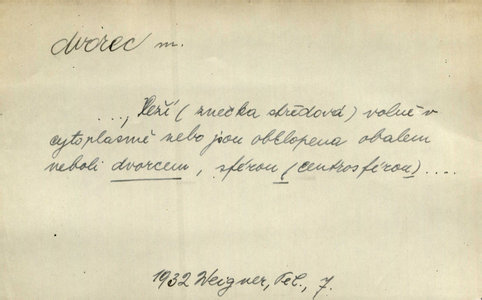 dvorec m.
...., leží (značka středová) volně v
cytoplasmě nebo jsou obklopena obalem
neboli dvorcem, sférou (centrosférou)....
1932 Weigner, Těl., 7.